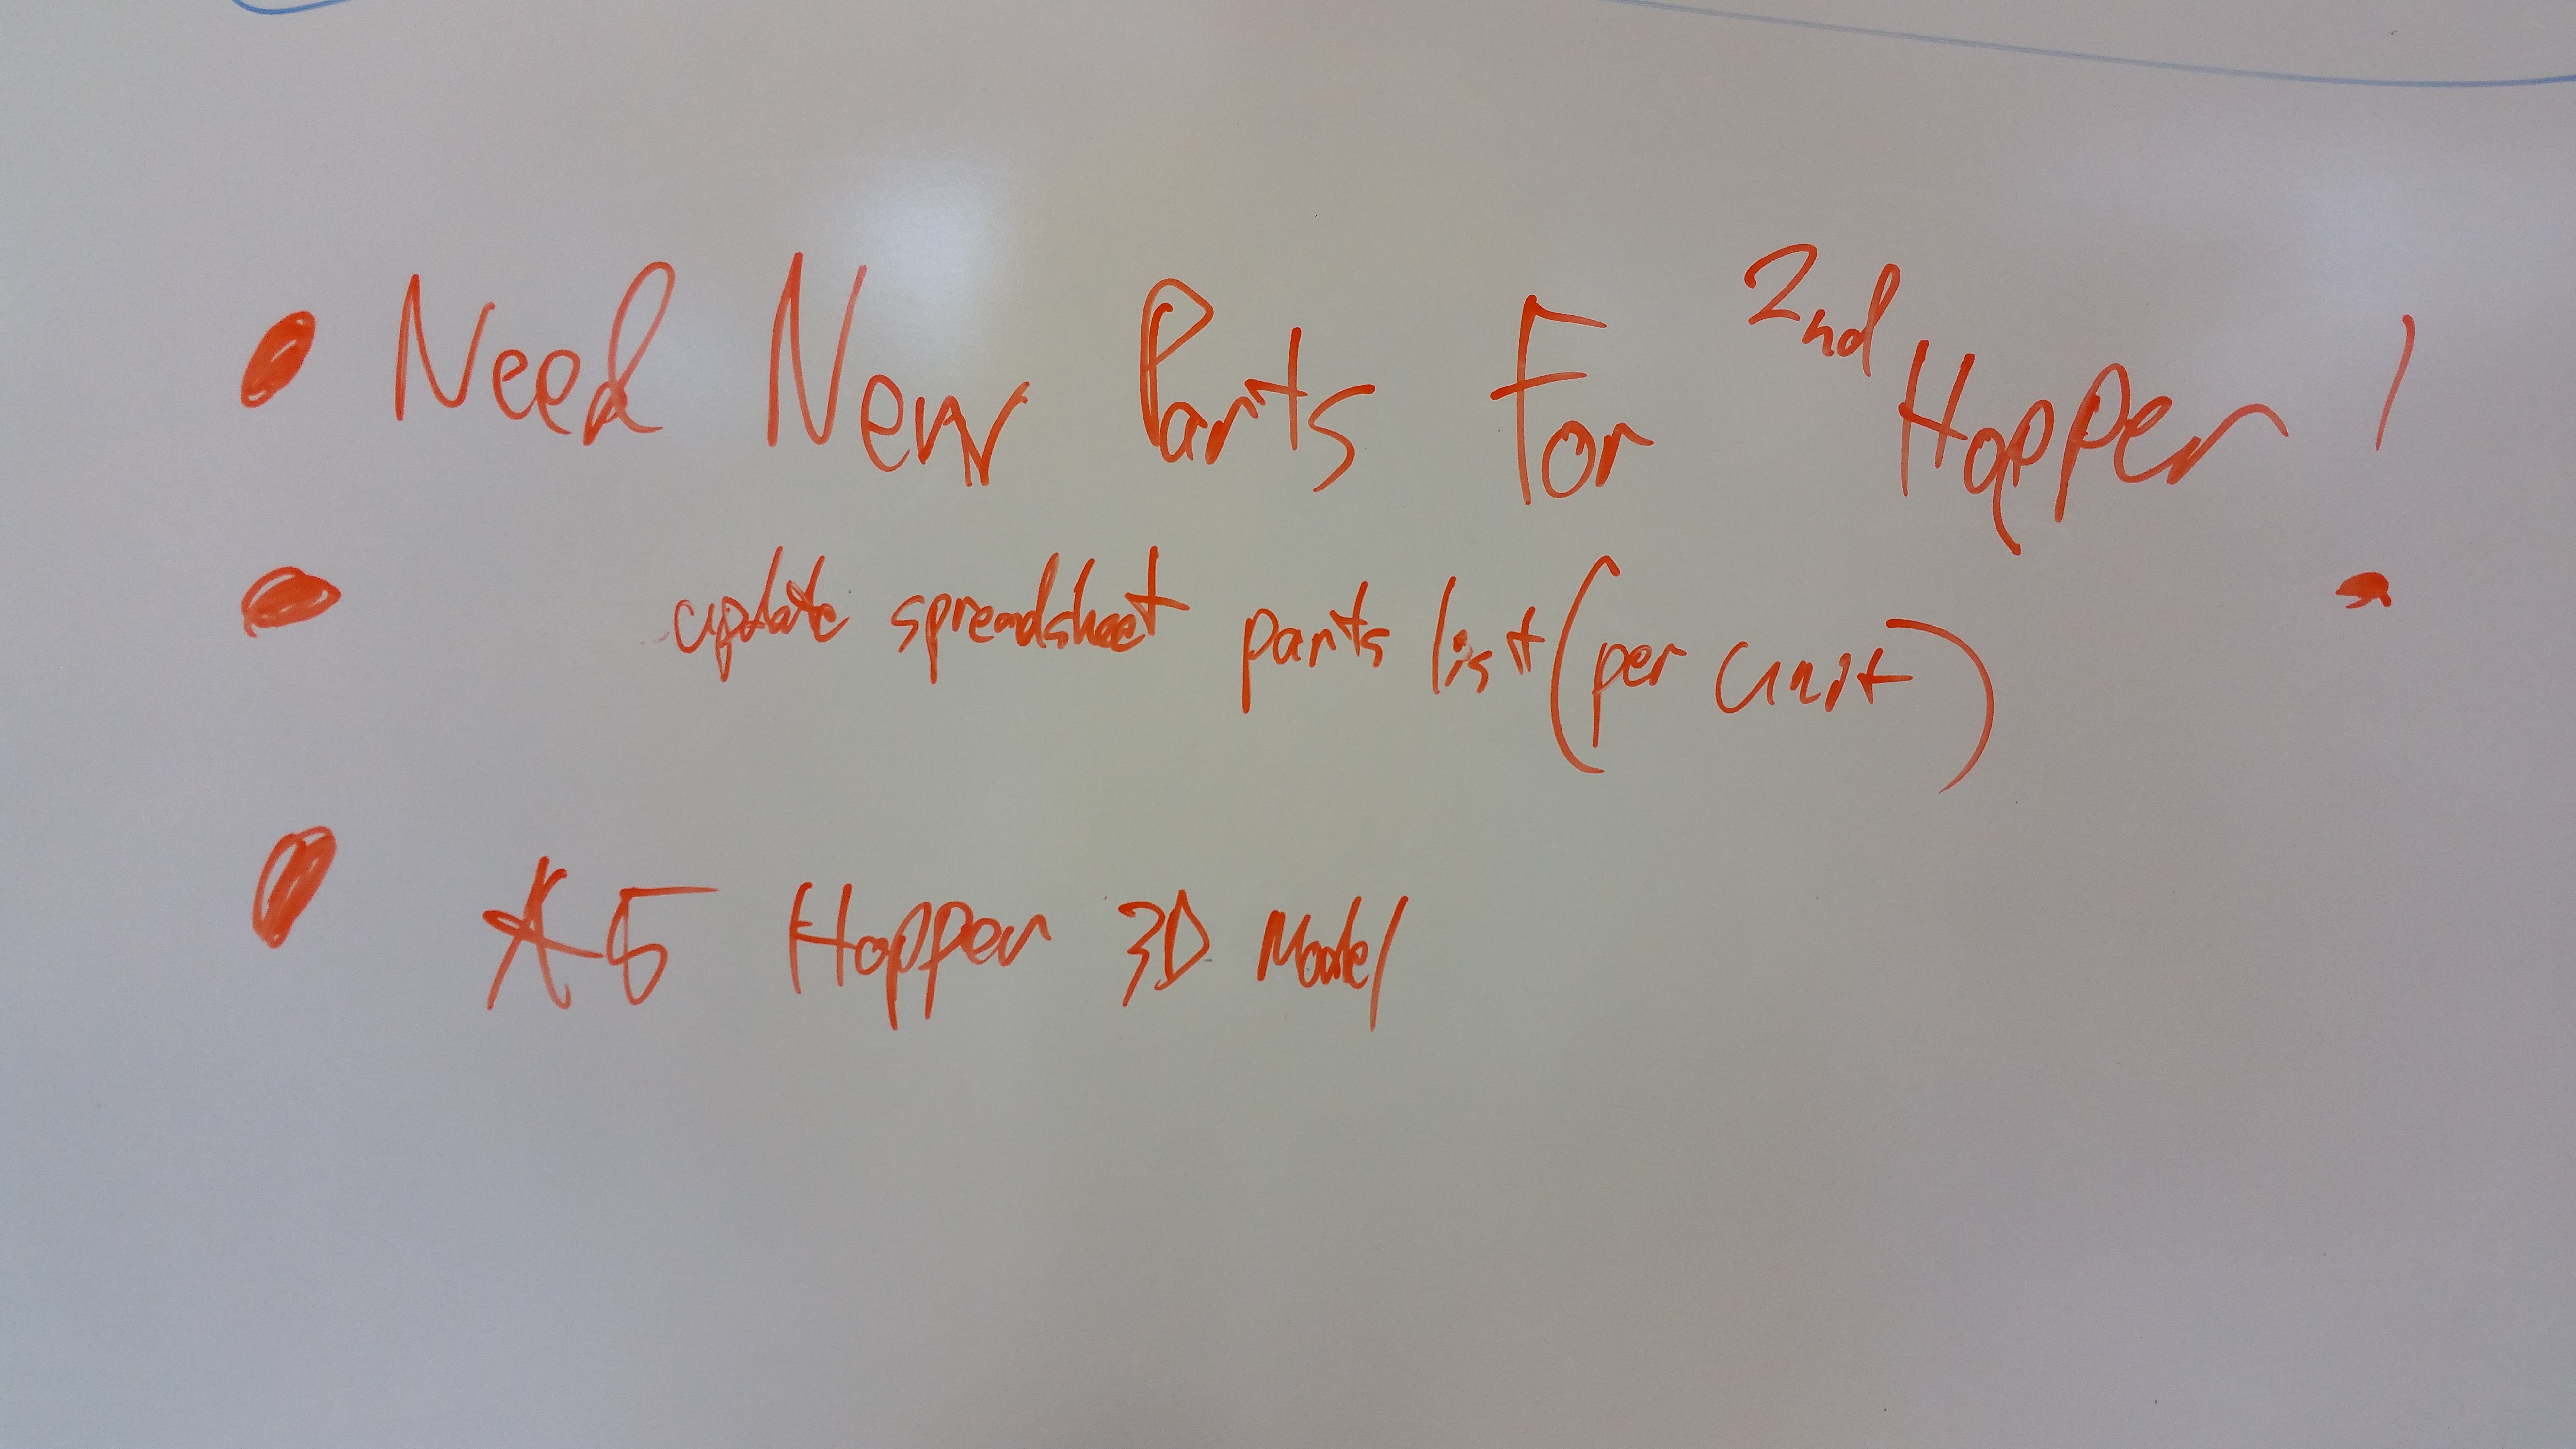 • Need New Parts For 2nd Hopper!
• update spreadsheet parts list (per unit)
• A5 Hopper 3D Model